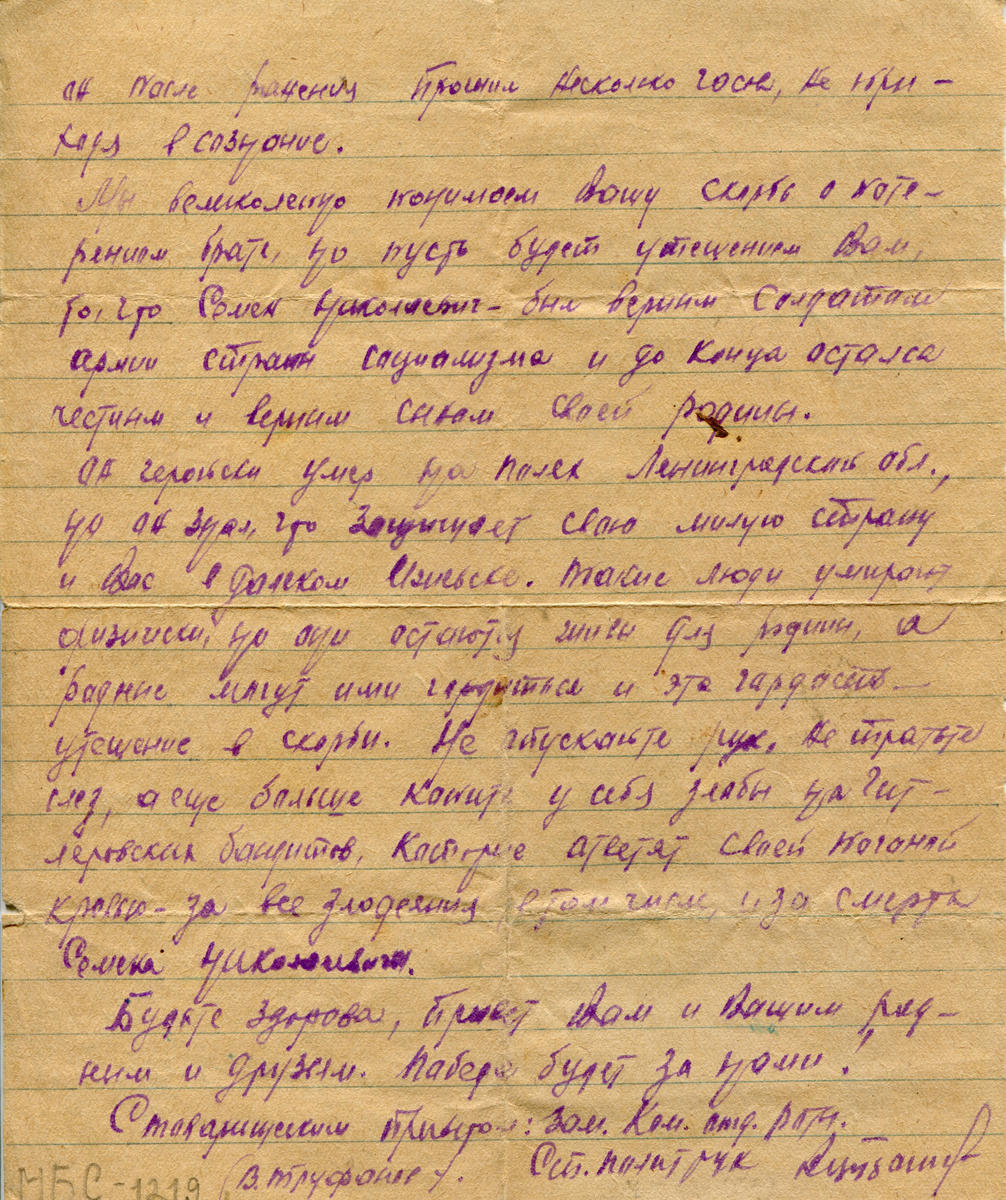 он после ранения прожил несколько часов, не при-
ходя в сознание.
Мы великолепно понимаем Вашу скорбь о поте-
рянном брате, но пусть будет утешением Вам,
то, что Семен Николаевич - был верным солдатом
армии страны социализма и до конца остался
честным и верным сыном своей родины.
Он геройски умер на полях Ленинградской обл.,
но он знал, что защищает свою милую страну
и Вас в далеком Ижевске. Такие люди умирают
физически, но они остаются живы для родины, а
родные могут ими гордиться и эта гордость -
утешение в скорби. Не опускайте рук, не тратьте
слез, а еще больше копите у себя злобы на Гит-
леровских бандитов, которые ответят своей поганой
кровью - за все злодеяния в том числе, и за смерть
Семена Николаевича.
Будьте здорова, привет Вам и Вашим род-
ным и друзьям. Победа будет за нами!
С товарищеским приветом: Зам. Ком. отд. роты.
Ст. политрук
(В. Труфанов).
МБС-1219